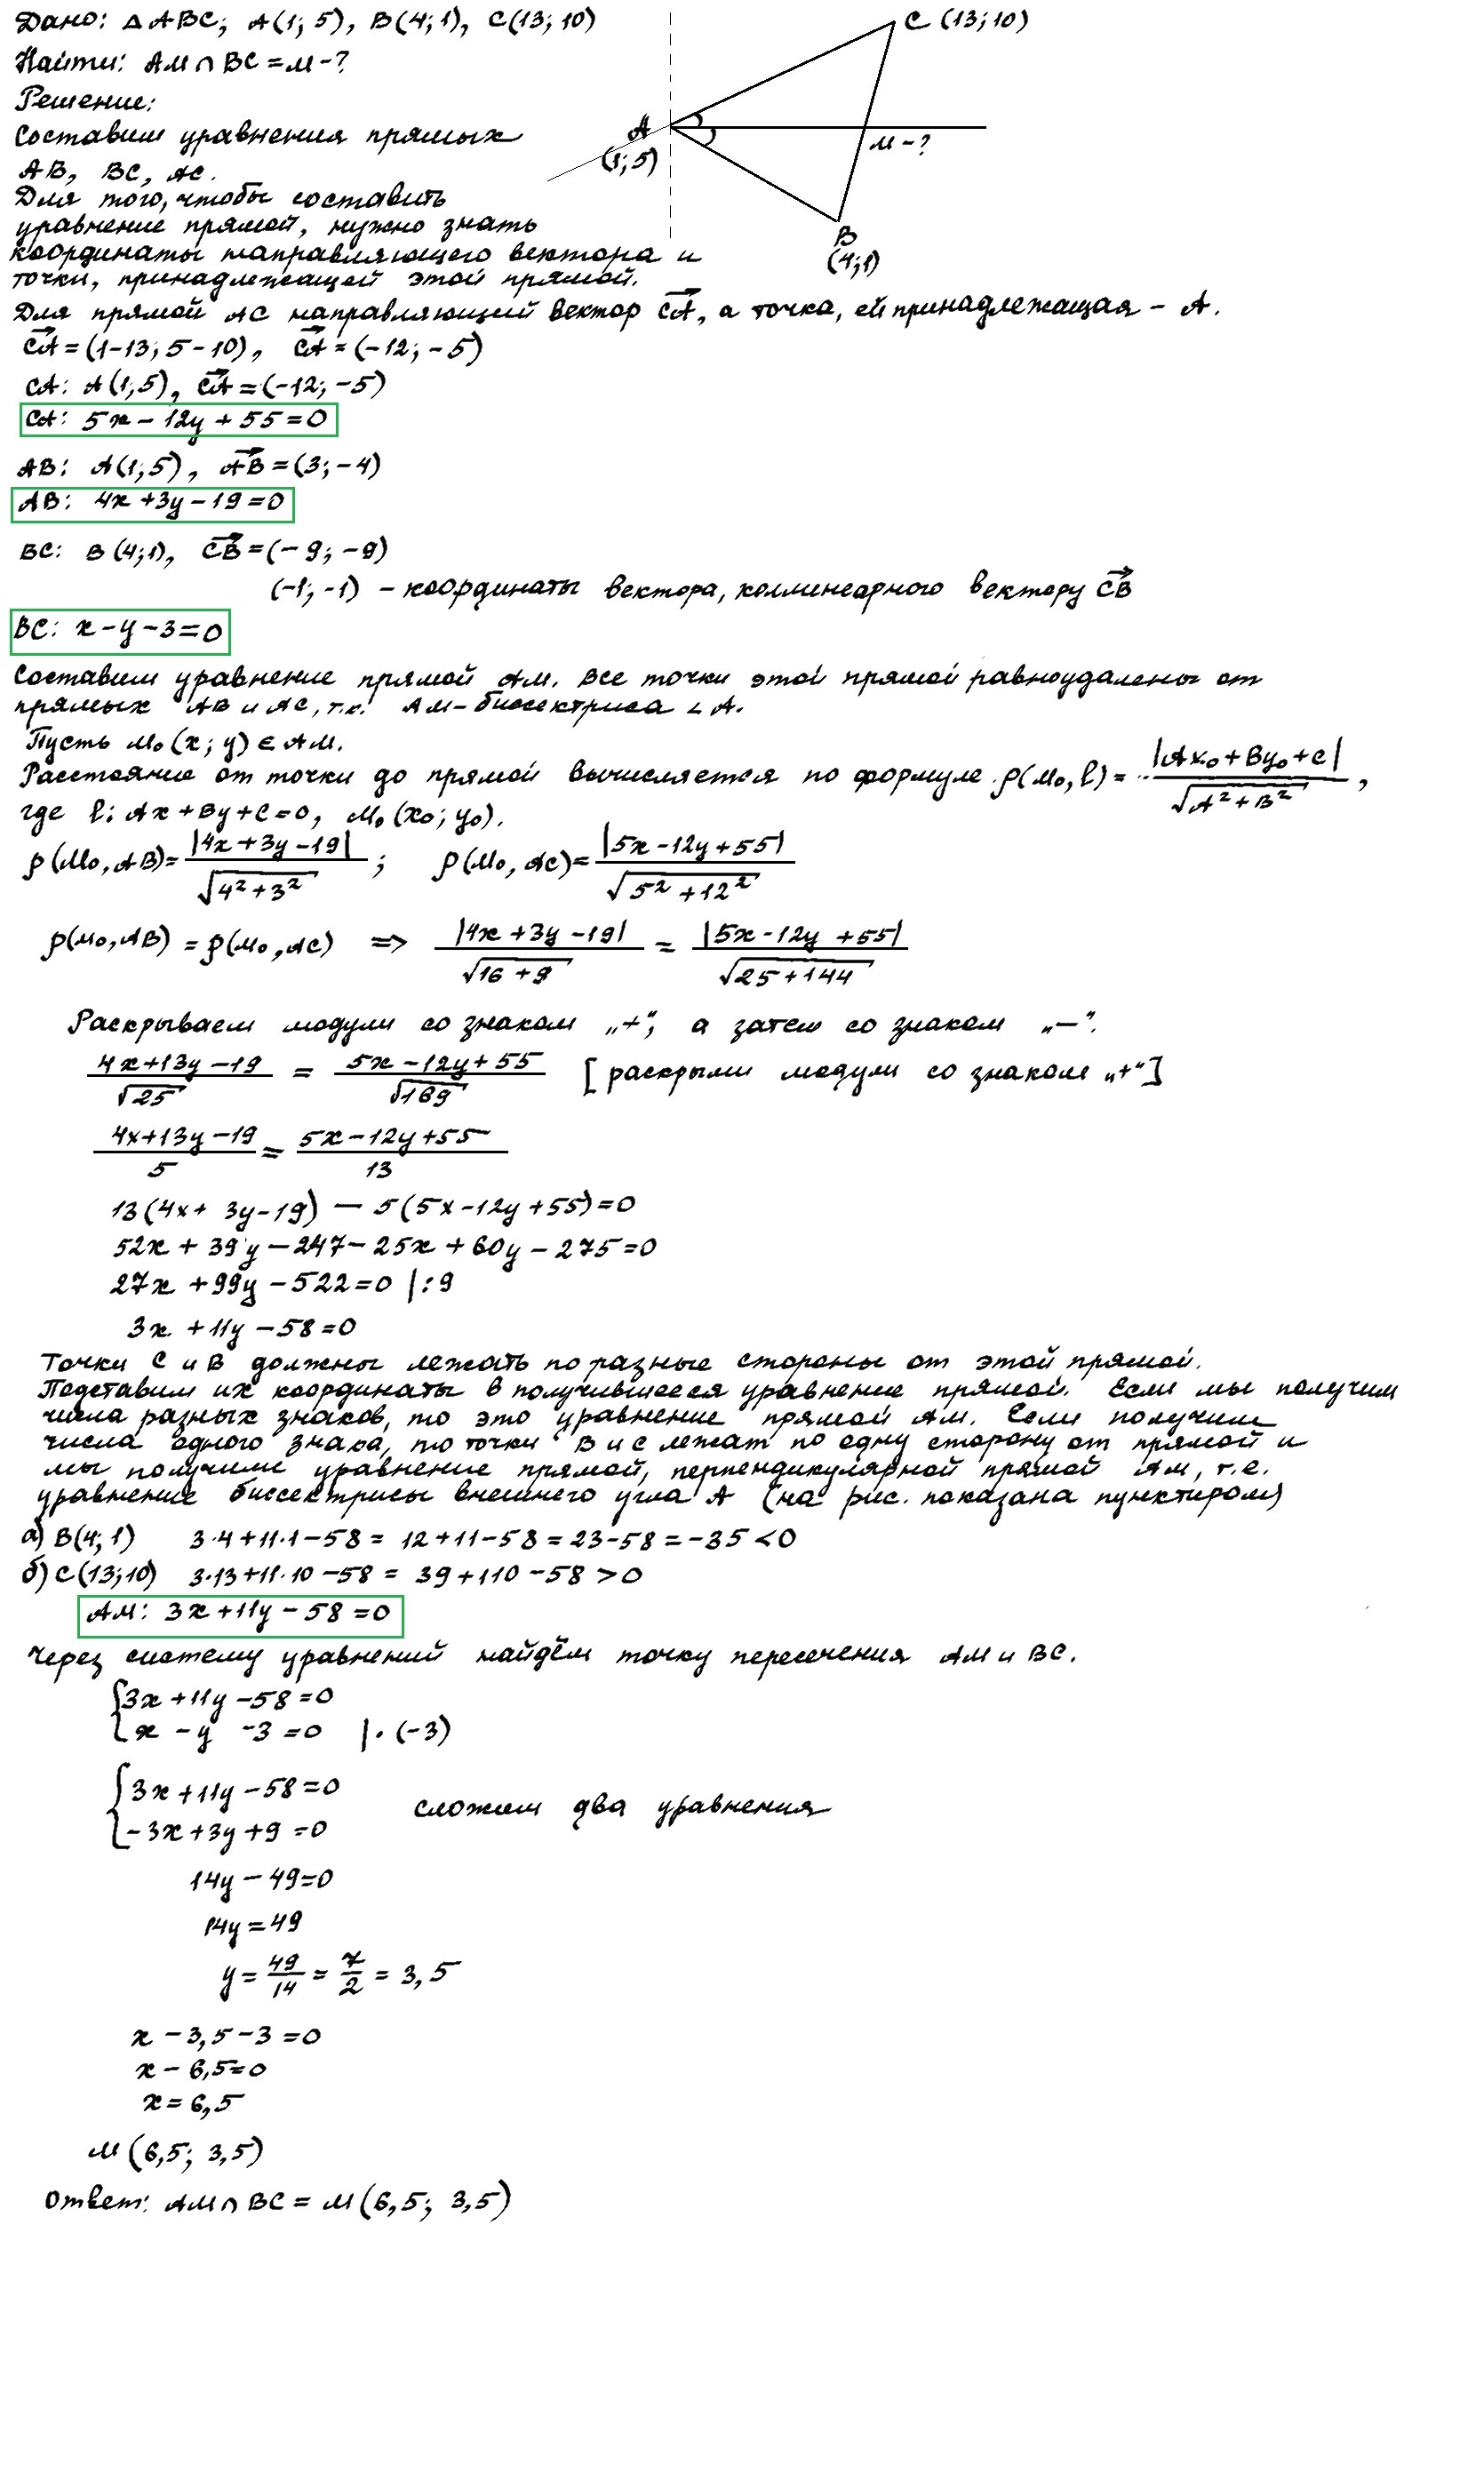 Дано: △ABC; A(1; 5), B(4; 1), C(13; 10)
Найти: AM ∩ BC = M - ?
Решение:
Составим уравнения прямых
AB, BC, AC.
Для того, чтобы составить
уравнение прямой, нужно знать
координаты направляющего вектора и
точки, принадлежащей этой прямой.
C (13; 10)
A
(1; 5)
M - ?
B
(4; 1)
Для прямой AC направляющий вектор CA⃗, а точка, ей принадлежащая - A.
CA⃗ = (1-13; 5-10), CA⃗ = (-12; -5)
CA: A(1; 5), CA⃗ = (-12; -5)
CA: 5x - 12y + 55 = 0
AB: A(1; 5), AB⃗ = (3; -4)
AB: 4x + 3y - 19 = 0
BC: B(4; 1), CB⃗ = (-9; -9)
(-1; -1) - координаты вектора, коллинеарного вектору CB⃗
BC: x - y - 3 = 0
Составим уравнение прямой AM. Все точки этой прямой равноудалены от
прямых AB и AC, т.к. AM - биссектриса ∠A.
Пусть M₀(x; y) ∈ AM.
Расстояние от точки до прямой вычисляется по формуле ρ(M₀, l) = |Ax₀ + By₀ + C| / √(A² + B²),
где l: Ax + By + C = 0, M₀(x₀; y₀).
ρ(M₀, AB) = |4x + 3y - 19| / √(4² + 3²); ρ(M₀, AC) = |5x - 12y + 55| / √(5² + 12²)
ρ(M₀, AB) = ρ(M₀, AC) => |4x + 3y - 19| / √(16 + 9) = |5x - 12y + 55| / √(25 + 144)
Раскрываем модули со знаком „+“, а затем со знаком „—“.
4x + 13y - 19 / √25 = 5x - 12y + 55 / √169 [раскрыли модули со знаком „+“]
4x + 13y - 19 / 5 = 5x - 12y + 55 / 13
13(4x + 3y - 19) — 5(5x - 12y + 55) = 0
52x + 39y - 247 - 25x + 60y - 275 = 0
27x + 99y - 522 = 0 | : 9
3x + 11y - 58 = 0
Точки C и B должны лежать по разные стороны от этой прямой.
Подставим их координаты в получившееся уравнение прямой. Если мы получим
числа разных знаков, то это уравнение прямой AM. Если получим
числа одного знака, то точки B и C лежат по одну сторону от прямой и
мы получили уравнение прямой, перпендикулярной прямой AM, т.е.
уравнение биссектрисы внешнего угла A (на рис. показана пунктиром)
а) B(4; 1) 3·4 + 11·1 - 58 = 12 + 11 - 58 = 23 - 58 = -35 < 0
б) C(13; 10) 3·13 + 11·10 - 58 = 39 + 110 - 58 > 0
AM: 3x + 11y - 58 = 0
Через систему уравнений найдём точку пересечения AM и BC.
{3x + 11y - 58 = 0
x - y - 3 = 0 | · (-3)
{3x + 11y - 58 = 0
-3x + 3y + 9 = 0
сложим два уравнения
14y - 49 = 0
14y = 49
y = 49/14 = 7/2 = 3,5
x - 3,5 - 3 = 0
x - 6,5 = 0
x = 6,5
M (6,5; 3,5)
Ответ: AM ∩ BC = M (6,5; 3,5)